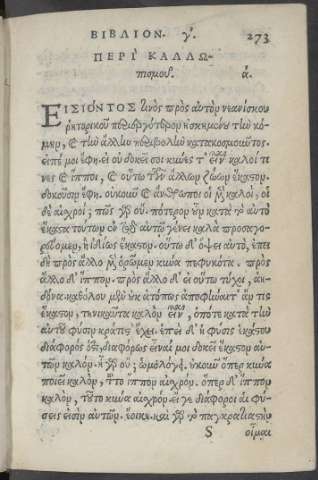 ΒΙΒΛΙΟΝ. γ΄. 273
ΠΕΡΙ ΚΑΛΛΩ-
πισμοῦ. ά.
ΕΙΣΙΟΝΤΟΣ τινὸς πρὸς αὐτὸν νεανίσκου
ῥητορικοῦ περιεργότερον ἡσκημένου τὴν κό-
μην, καὶ τὴν ἄλλην περιβολὴν κατακοσμοῦντος.
εἰπέ μοι ἔφη. εἰ οὐ δοκοῦσί σοι κύνες τ' εἶναι καλοί τι
νες καὶ ἵπποι, καὶ οὕτω τῶν ἄλλων ζώων ἕκαστον.
δοκοῦσιν ἔφη. οὐκοῦν καὶ ἄνθρωποι οἱ μὲν καλοί, οἱ
δὲ αἰσχροί; πῶς γὰρ οὔ. πότερον οὖν κατὰ τὸ αὐτὸ
ἕκαστα τούτων ἐν τῷ αὐτῷ γένει καλὰ προσαγο-
ρεύομεν, ἢ ἰδίως ἕκαστον. οὕτω δ' ὄψει αὐτό, ἐπει
δὴ πρὸς ἄλλο μὲν ὁρῶμεν κύνα πεφυκότα. πρὸς
ἄλλο δ' ἵππον. πρὸς ἄλλο δ' εἰ οὕτω τύχοι, ἀη-
δόνα. καθόλου μὲν οὐκ ἀτόπως ἀποφήναιτ' ἄν τις
ἕκαστον, τηνικαῦτα καλὸν εἶναι, ὁπότε κατὰ τὴν
αὑτοῦ φύσιν κράτιστ' ἔχει. ἐπεὶ δ' ἡ φύσις ἑκάστου
διάφορός ἐστι, διαφόρως εἶναί μοι δοκεῖ ἕκαστον αὐ-
τῶν καλόν. ἢ γὰρ οὔ; ὡμολόγει. οὐκοῦν ὅπερ κύνα
ποιεῖ καλόν, τοῦτο ἵππον αἰσχρόν. ὅπερ δ' ἵππον
καλόν, τοῦτο κύνα αἰσχρόν. εἴ γε διάφοροι αἱ φύ-
σεις εἰσὶν αὐτῶν. ἔοικε. καὶ γὰρ τὸ παγκρατιαστὴν
S οἶμαι